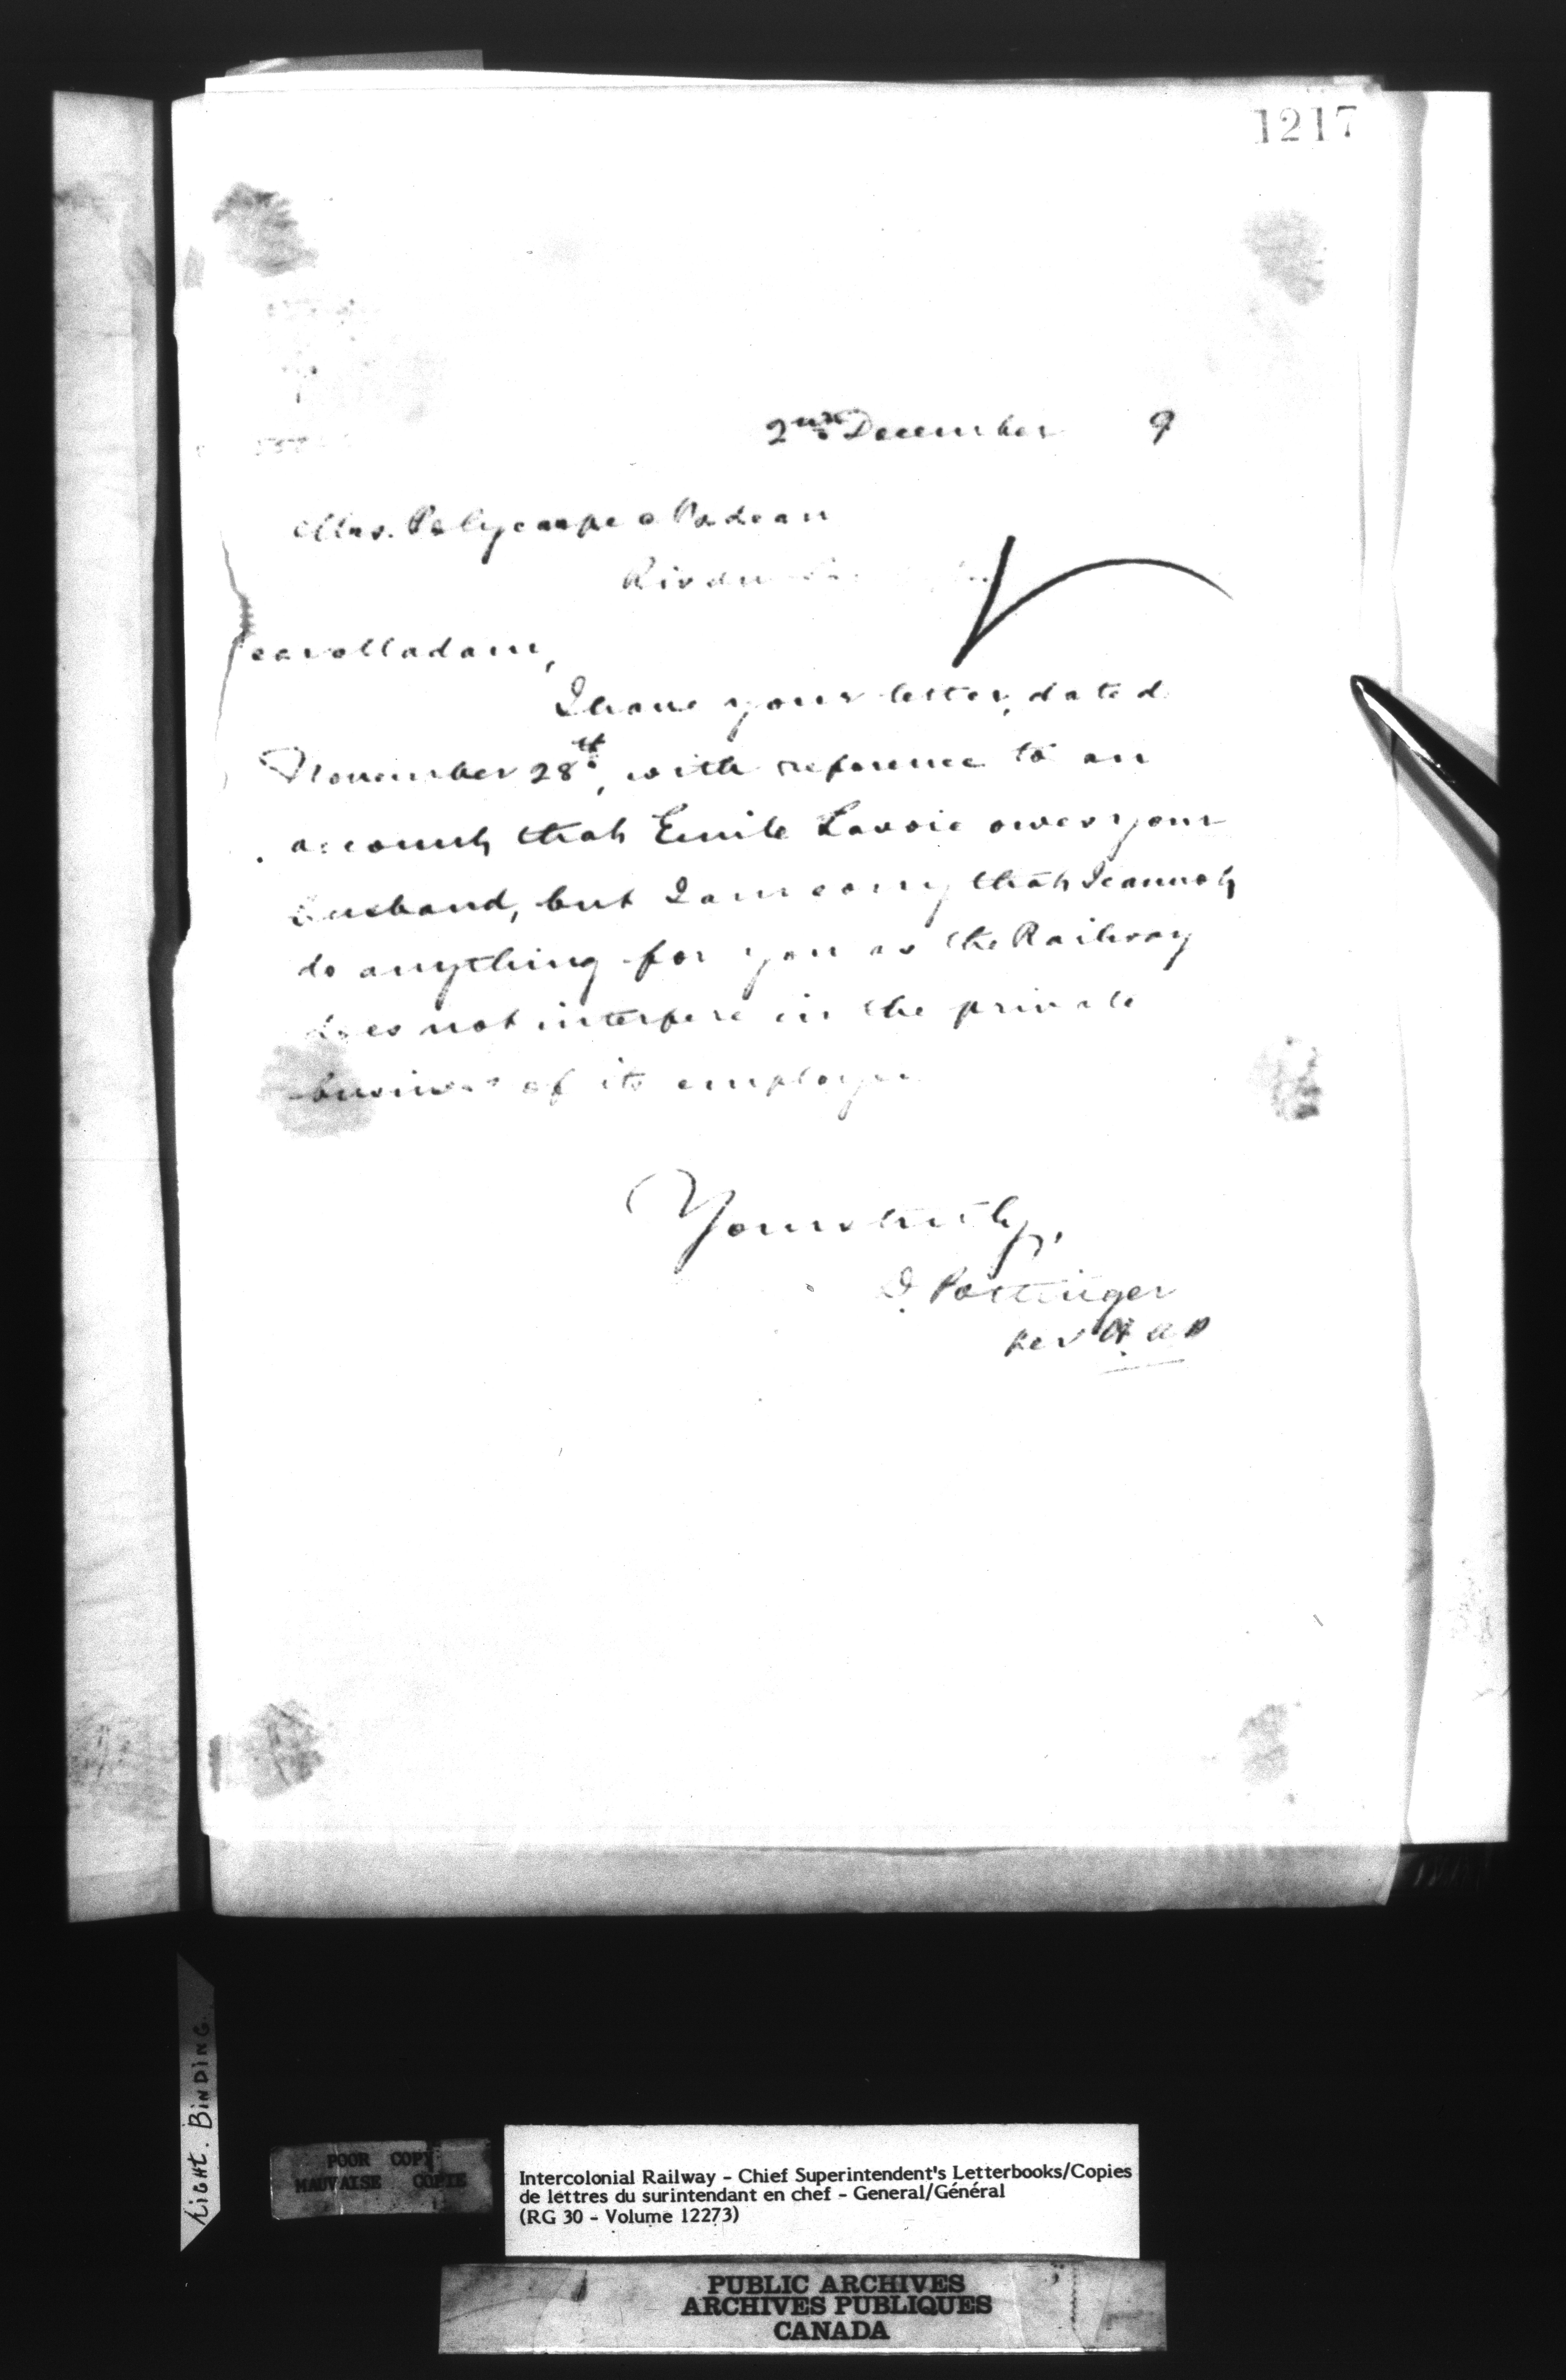 1217
2nd December 9
Mrs. Polycarpe Nadeau
Rivière
Dear Madam,
I have your letter, dated
November 28th, with reference to an
account that Emile Lavoie owes your
husband, but I am sorry that I cannot
do anything for you as the Railway
does not interfere in the private
business of its employees
Yours truly,
D. Pottinger
Per
TIGHT. BINDING.
POOR COPY
MAUVAISE COPIE
Intercolonial Railway - Chief Superintendent's Letterbooks/Copies
de lettres du surintendant en chef - General/Général
(RG 30 - Volume 12273)
PUBLIC ARCHIVES
ARCHIVES PUBLIQUES
CANADA